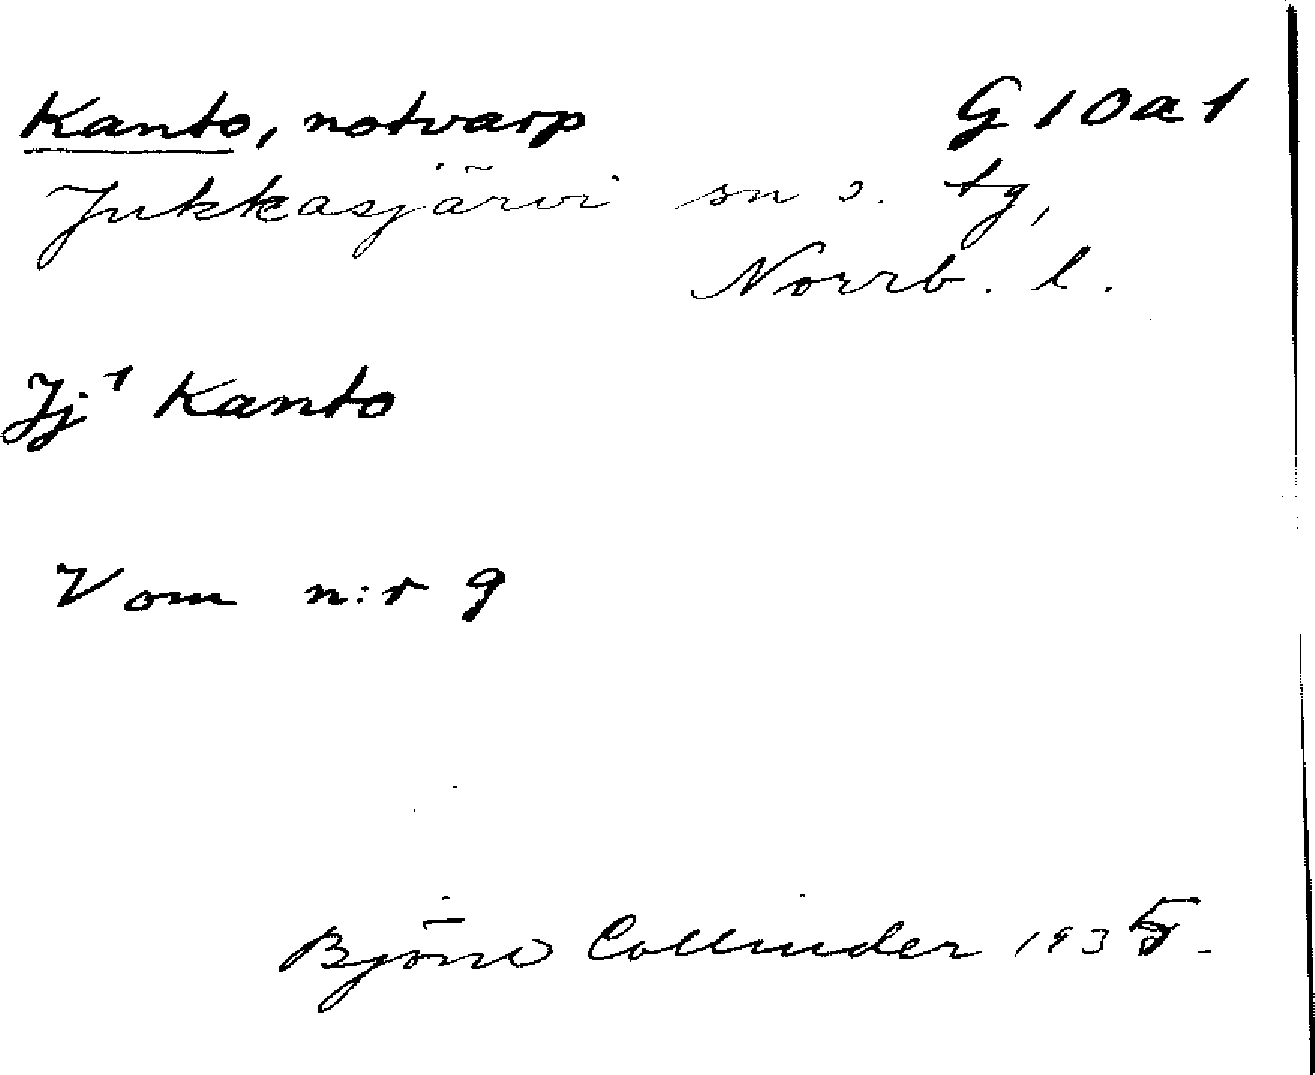 Kanto, notvarp G 10 a 1
Jukkasjärvi sn o. tg,
Norrb. l.
Jj¹ Kanto
V om n:r 9
Björn Collinder 1935.